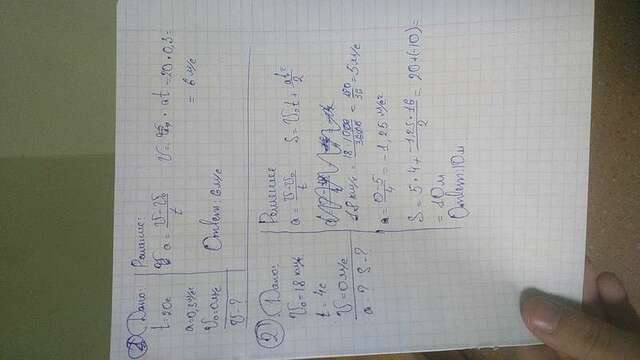 ① Дано:
t=20с
a=0,3м/с²
V₀=0м/с
V-?
Решение:
a = V-V₀/t
V = at = 20·0,3=
= 6 м/с
Ответ: 6м/с
② Дано:
V₀=18 км/ч
t=4с
V=0м/с
a-? S-?
Решение
a = V-V₀/t S=V₀t+at²/2
18 км/ч = 18·1000/3600 = 180/36 = 5м/с
a = 0-5/4 = -1,25 м/с²
S = 5·4+ -1,25·16/2 = 20+(-10)=
= 10м
Ответ: 10м